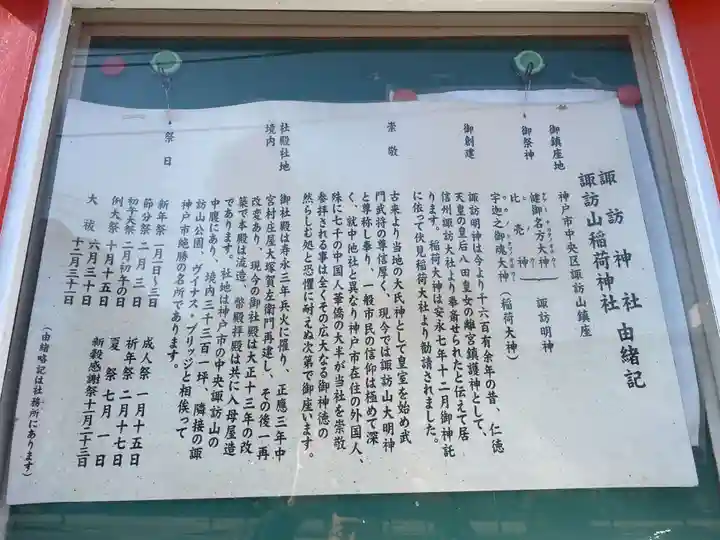 諏訪神社
諏訪山稲荷神社
由緒記
御鎮座地
神戸市中央区諏訪山鎮座
御祭神
健御名方大神
比売神
諏訪明神
宇迦之御魂大神(稲荷大神)
御創建
諏訪明神は今より千六百有余年の昔、仁徳
天皇の皇后八田皇女の離宮鎮護神として、
信州諏訪大社より奉斎せられたと伝えて居
ります。稲荷大神は安永七年十二月御神託
に依って伏見稲荷大社より勧請されました。
崇敬
古来より当地の大氏神として皇室を始め武
門武将の尊信厚く、現今では諏訪山大明神
と尊称し奉り、一般市民の信仰は極めて深
く、就中他社と異なり神戸市在住の外国人、
殊に七千の中国人華僑の大半が当社を崇敬
参拝される事は全くその広大なる御神徳の
然らしむ処と恐懼に耐えぬ次第で御座います。
社殿社地
境内
御社殿は寿永三年兵火に罹り、正應三年中
宮村庄屋大塚賀左衛門再建し、その後一再
改変あり、現今の御社殿は大正十三年の改
築で本殿は流造、幣殿拝殿は共に入母屋造
であります。社地は神戸市の中央諏訪山の
中腹にあり、境内三千三百一坪、隣接の諏
訪山公園、ヴイナス・ブリッジと相俟って
神戸市絶勝の名所であります。
祭日
新年祭 一月一日~三日
成人祭 一月十五日
節分祭 二月三日
祈年祭 二月十七日
初午大祭 二月初午の日
夏祭 七月一日
例大祭 十月十五日
新穀感謝祭 十一月二十三日
大祓 六月三十日
十二月三十一日
(由緒略記は社務所にあります)